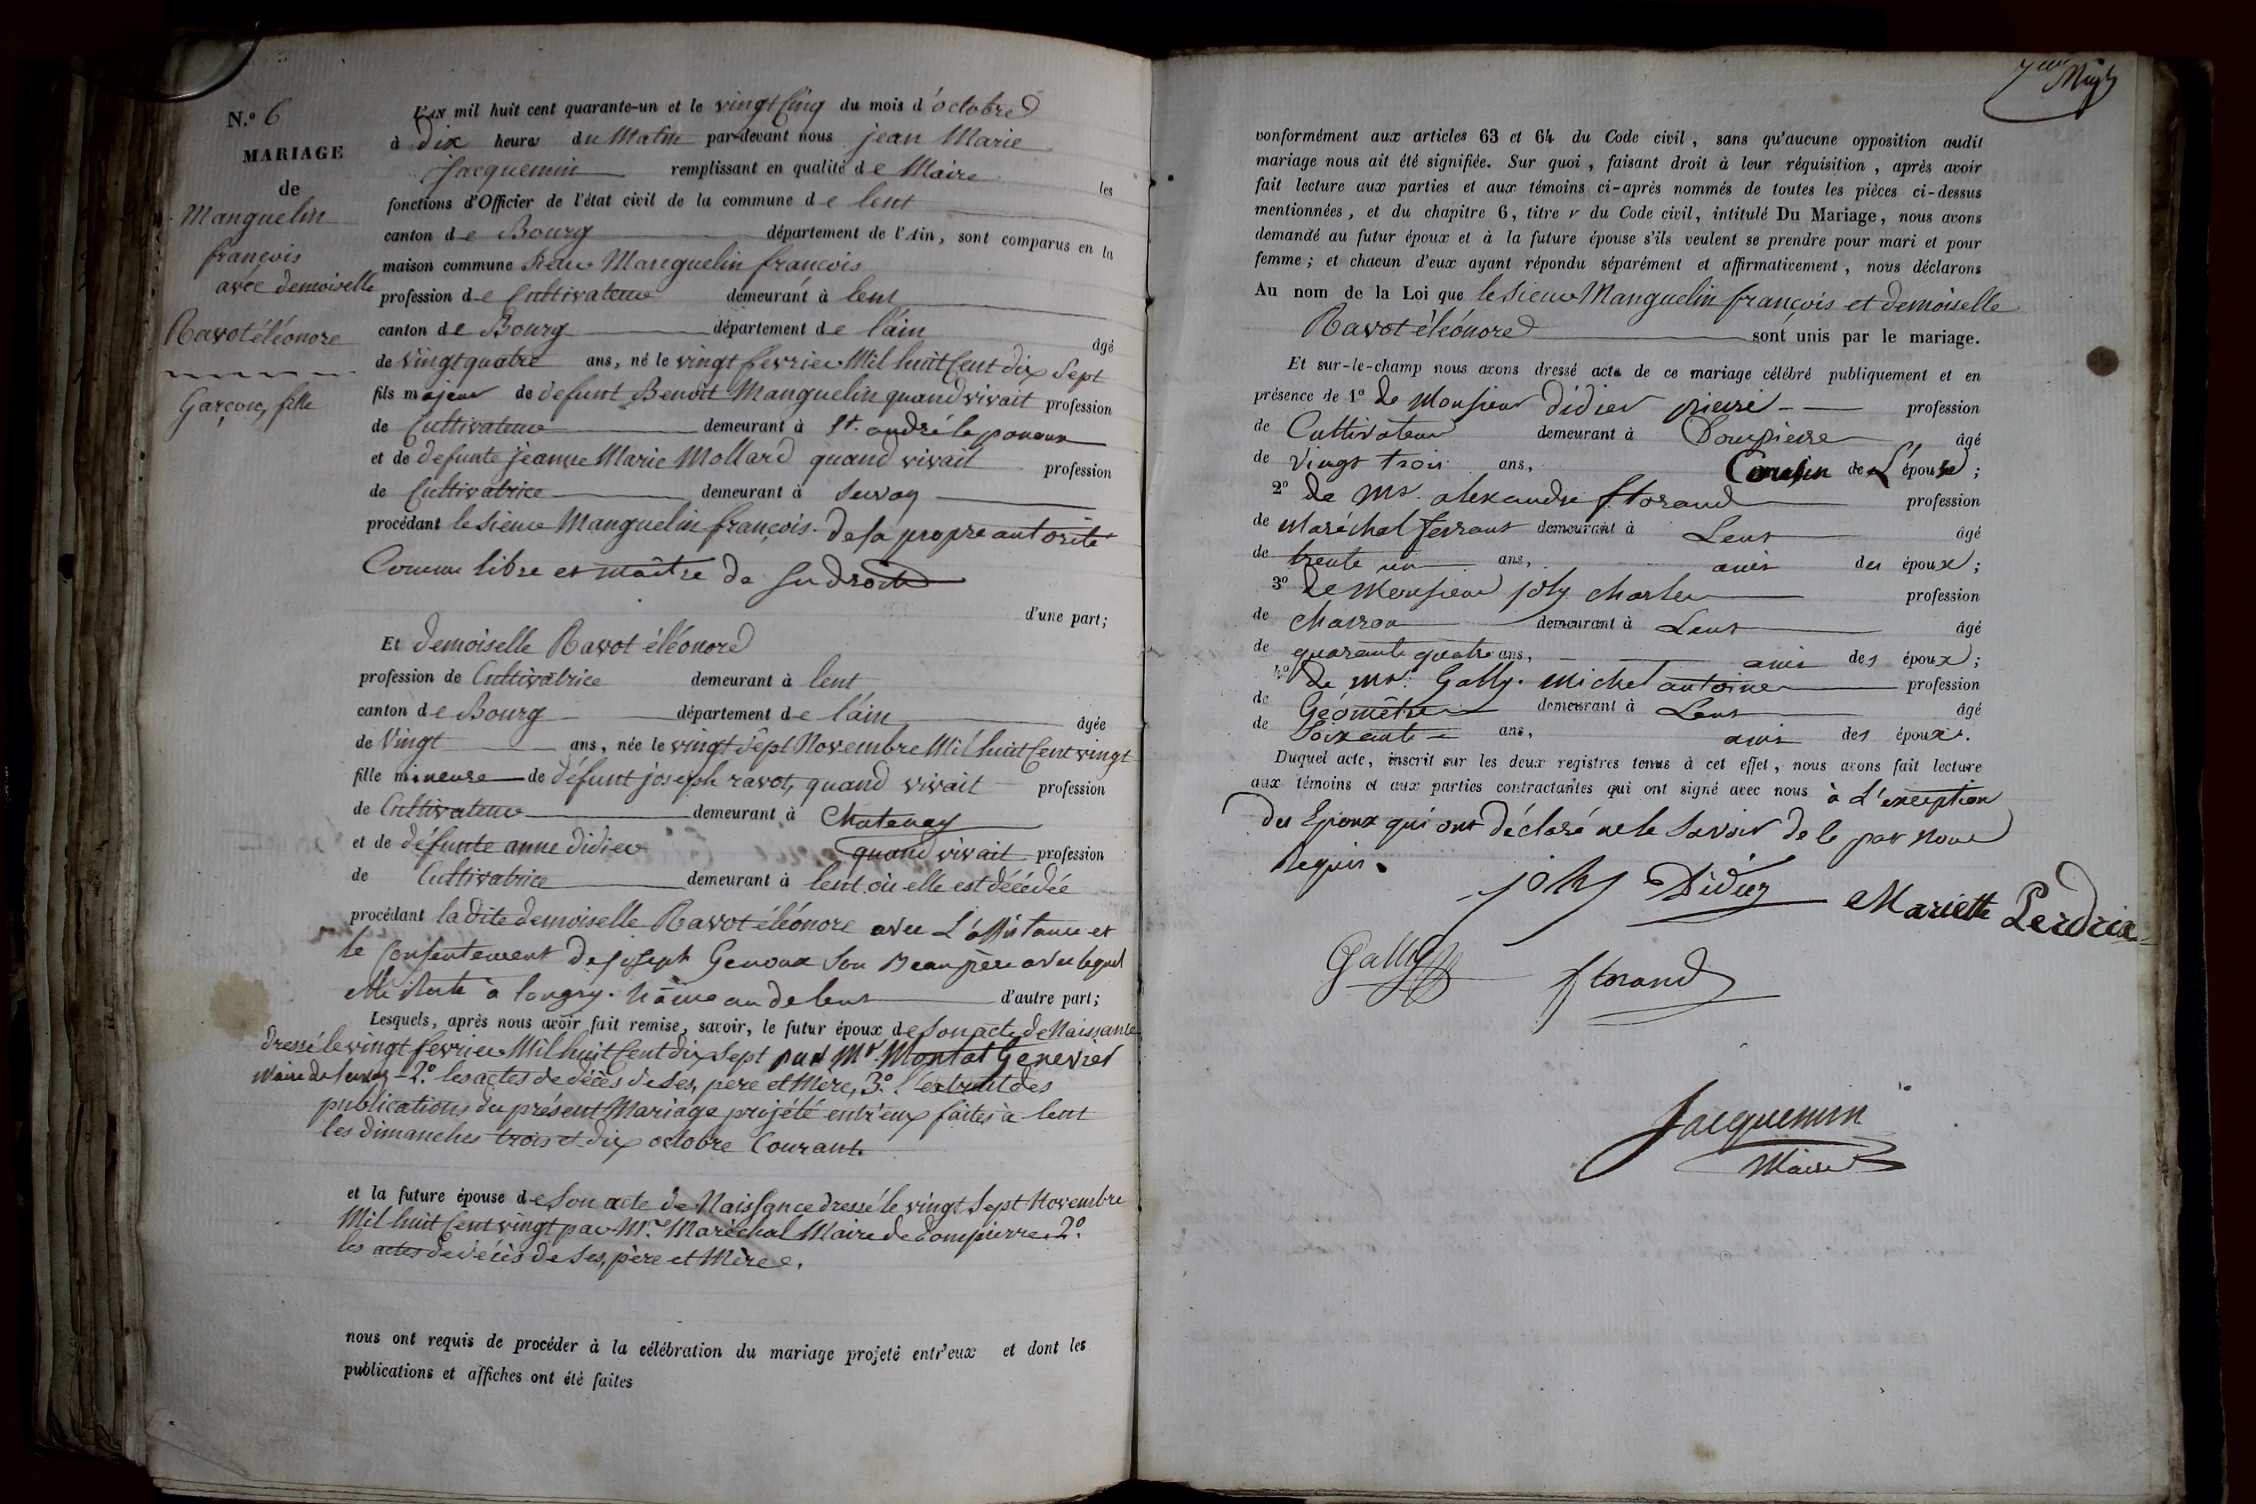 N.º 6
MARIAGE
de
Manguelin
françois
avec demoiselle
Ravot éléonore
Garçon, fille
L'AN mil huit cent quarante-un et le vingt Cinq du mois d'octobre
à dix heures du Matin par-devant nous jean Marie
Jacquemin remplissant en qualité de Maire les
fonctions d'Officier de l'état civil de la commune de lent
canton de Bourg département de l'Ain, sont comparus en la
maison commune sieur Manguelin françois
profession de Cultivateur demeurant à lent
canton de Bourg département de l'ain âgé
de vingt quatre ans, né le vingt fevrier Mil huit Cent dix Sept
fils majeur de defunt Benoit Manguelin quand vivait profession
de Cultivateur demeurant à St. andré le panoux
et de defunte jeanne Marie Mollard quand vivait profession
de Cultivatrice demeurant à Servas
procédant le sieur Manguelin françois de sa propre autorité
Comme libre et maître de ses droits
d'une part;
Et demoiselle Ravot éléonore
profession de Cultivatrice demeurant à lent
canton de Bourg département de l'ain âgée
de Vingt ans, née le vingt Sept Novembre Mil huit Cent vingt
fille mineure de défunt joseph ravot, quand vivait profession
de Cultivateur demeurant à Chatenay
et de défunte anne didier quand vivait profession
de Cultivatrice demeurant à lent où elle est décédée
procédant la dite demoiselle Ravot éléonore avec L'assistance et
le Consentement de joseph Genoux Son Beaupère avec lequel
elle reste à longry. hâmeau de lent d'autre part;
Lesquels, après nous avoir fait remise, savoir, le futur époux de Son acte de Naissance
dressé le vingt fevrier Mil huit Cent dix Sept par Mr. Montat Genevier
Maire de Servas - 2.º les actes de décès de Ses, père et Mère, 3.º l'extrait des
publications du présent Mariage projété entr'eux faites à lent
les dimanches trois et dix octobre Courant.
et la future épouse de Son acte de Naissance dressé le vingt Sept Novembre
Mil huit Cent vingt par Mr. Maréchal Maire de dompierre. 2.º
les actes de décès de Ses, père et Mère.
nous ont requis de procéder à la célébration du mariage projeté entr'eux et dont les
publications et affiches ont été faites
conformément aux articles 63 et 64 du Code civil, sans qu'aucune opposition audit
mariage nous ait été signifiée. Sur quoi, faisant droit à leur réquisition, après avoir
fait lecture aux parties et aux témoins ci-après nommés de toutes les pièces ci-dessus
mentionnées, et du chapitre 6, titre v du Code civil, intitulé Du Mariage, nous avons
demandé au futur époux et à la future épouse s'ils veulent se prendre pour mari et pour
femme; et chacun d'eux ayant répondu séparément et affirmativement, nous déclarons
Au nom de la Loi que le Sieur Manguelin françois et demoiselle
Ravot éléonore sont unis par le mariage.
Et sur-le-champ nous avons dressé acte de ce mariage célébré publiquement et en
présence de 1º de Monsieur didier pierre profession
de Cultivateur demeurant à Dompierre âgé
de vingt trois ans, Cousin de L'épouse;
2º de Mr. alexandre florand profession
de Maréchal ferrant demeurant à Lent âgé
de trente un ans, amis des époux;
3º de Monsieur joly charles profession
de charron demeurant à Lent âgé
de quarante quatre ans, amis des époux;
4º de Mr. Gally. michel antoine profession
de Géomètre demeurant à Lent âgé
de Soixante ans, amis des époux.
Duquel acte, inscrit sur les deux registres tenus à cet effet, nous avons fait lecture
aux témoins et aux parties contractantes qui ont signé avec nous à L'exception
des Epoux qui ont déclaré ne le Savoir de ce par nous
Requis.
joly Didier Mariette Perdrix
Gally florand
Jacquemin
Maire